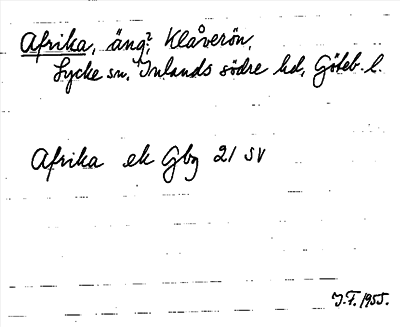 Afrika, äng?, Klåverön,
Lycke sn. Inlands södre hd, Göteb. l.
Afrika ek Gbg 21 SV
J.F. 1955.